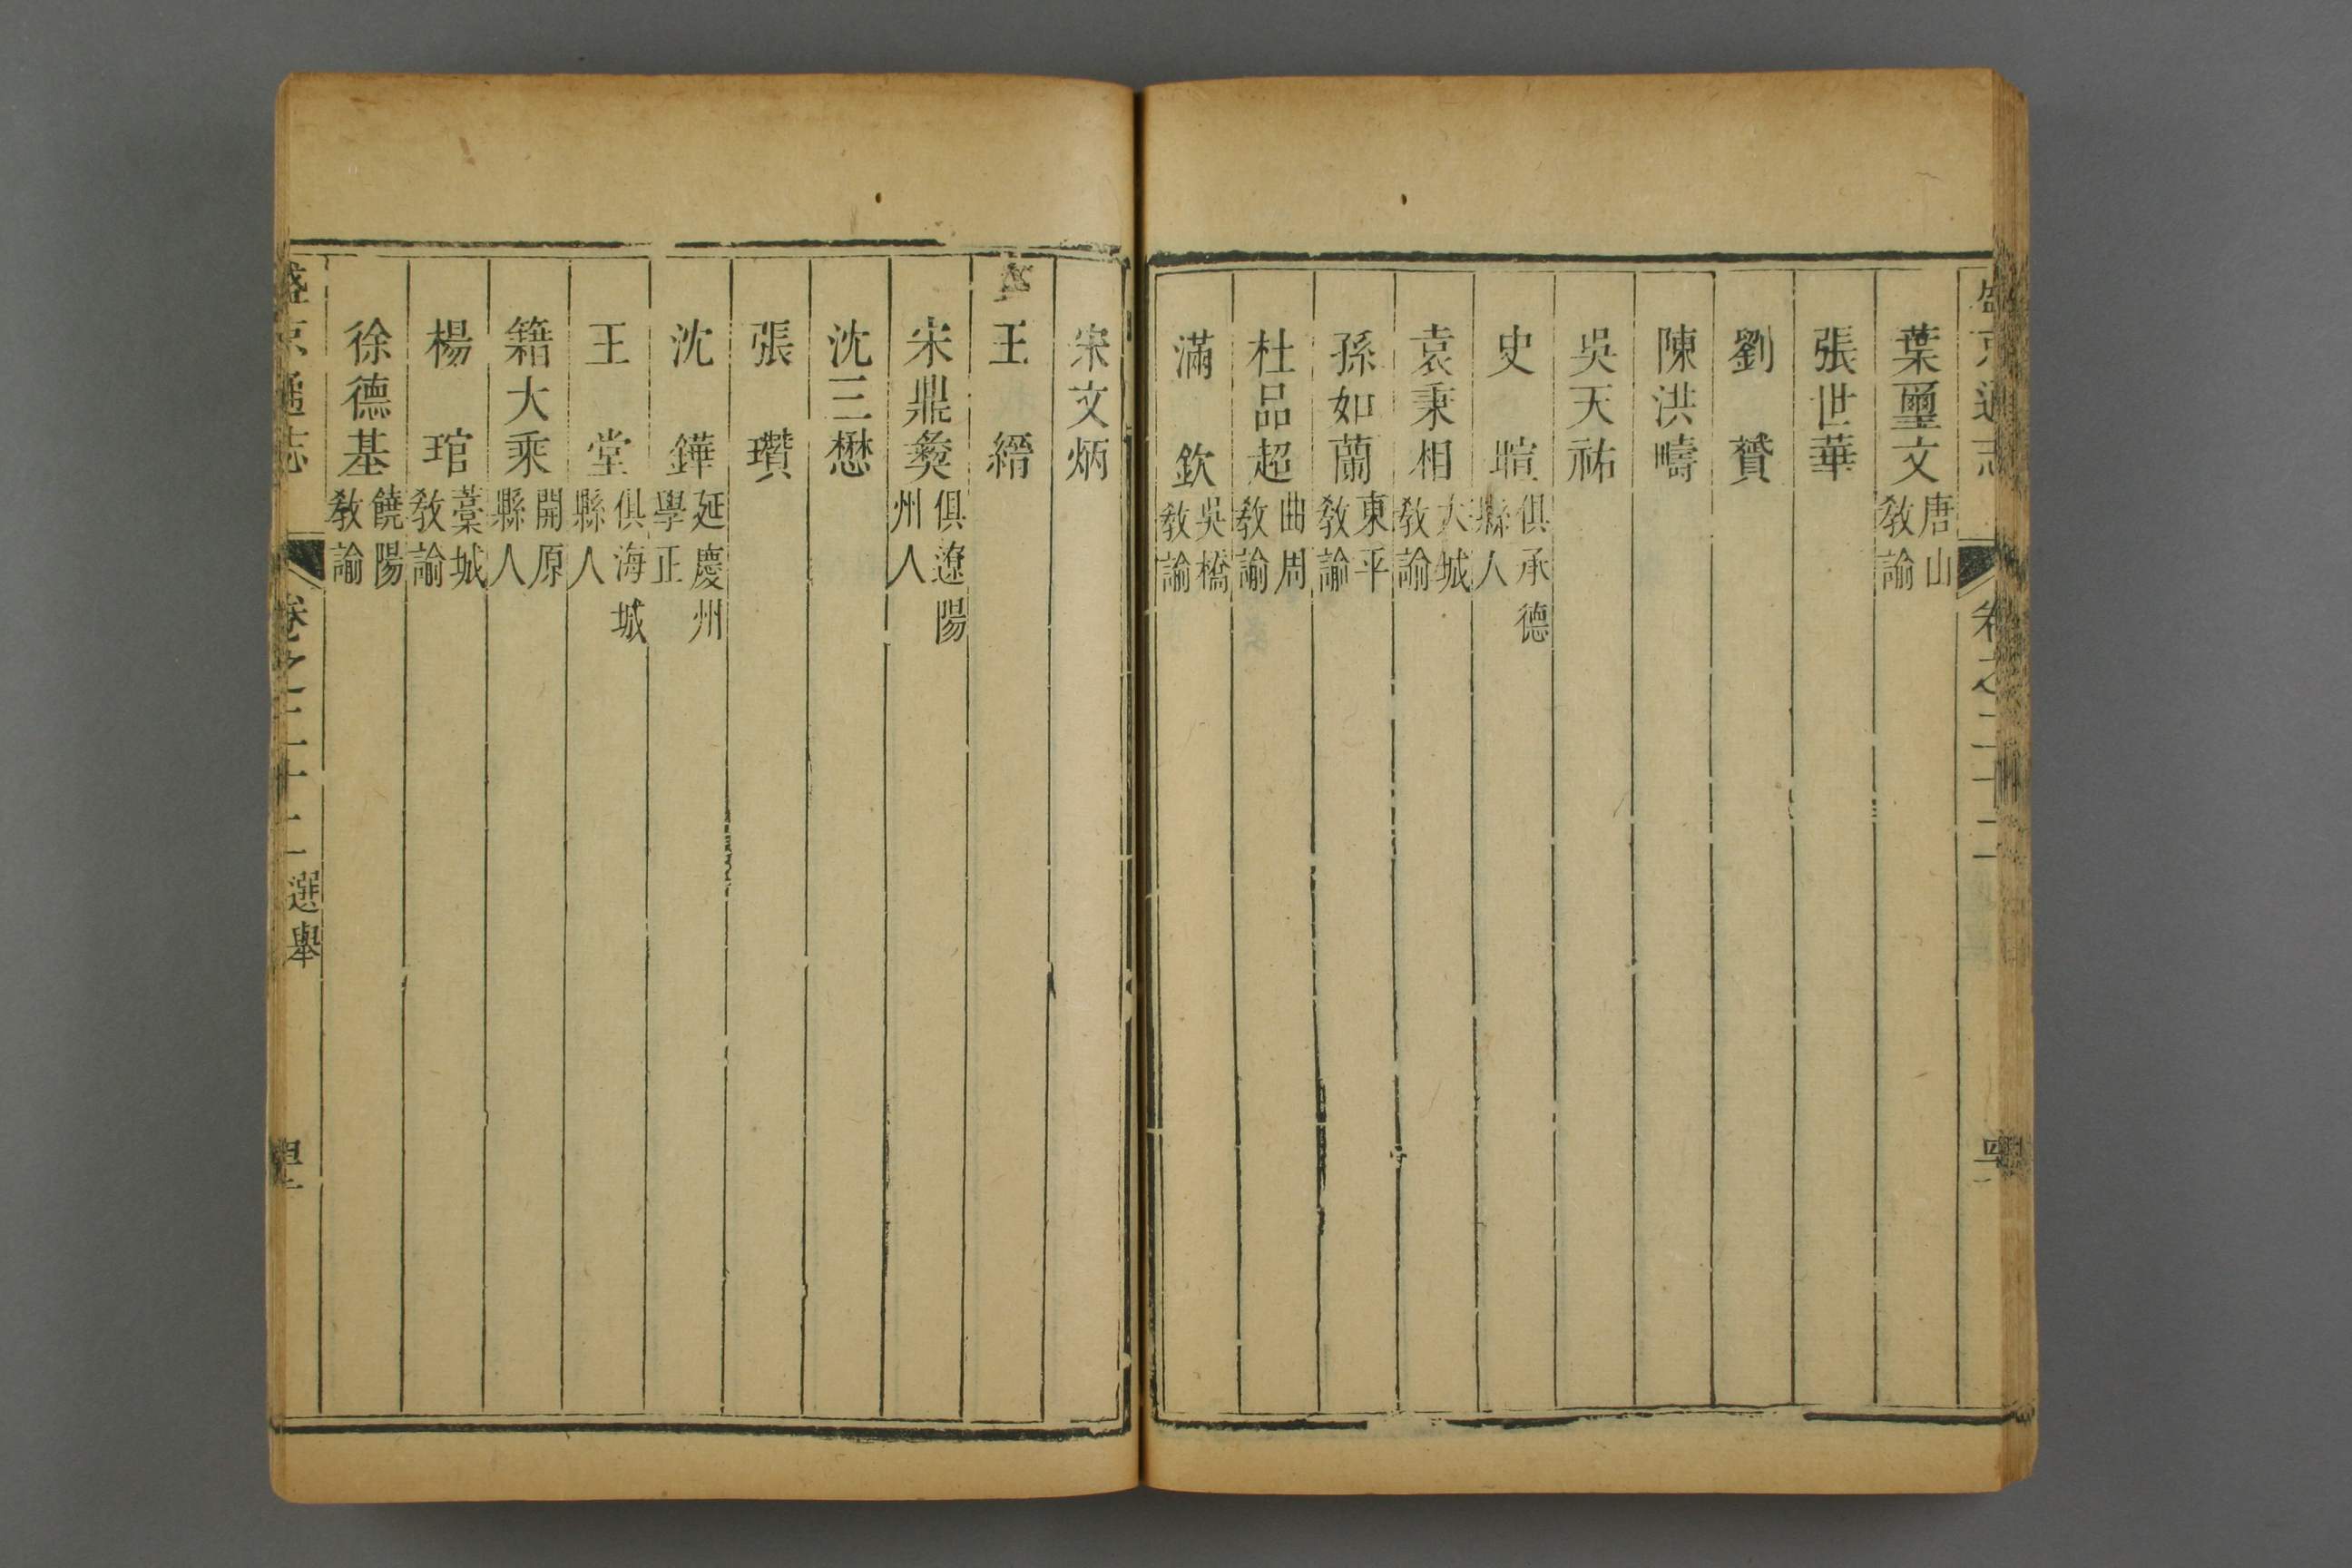 盛京通志 卷之二十二
葉璽文 唐山教諭
張世華
劉贇
陳洪疇
吳天祐
史暄 俱承德縣人
袁秉相 大城教諭
孫如蘭 東平教諭
杜品超 曲周教諭
滿欽 吳橋教諭
宋文炳
王縉
宋鼎彝 俱遼陽州人
沈三懋
張瓚
沈鏵 延慶州學正
王堂 俱海城縣人
籍大乘 開原縣人
楊琯 藁城教諭
徐德基 饒陽教諭
盛京通志 卷之二十二 選舉